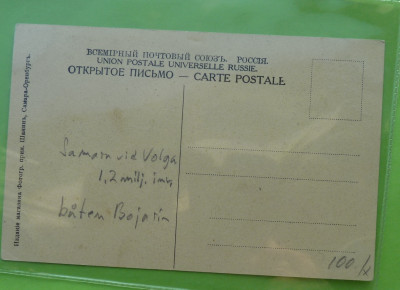 ВСЕМІРНЫЙ ПОЧТОВЫЙ СОЮЗЪ. РОССІЯ.
UNION POSTALE UNIVERSELLE RUSSIE.
ОТКРЫТОЕ ПИСЬМО — CARTE POSTALE
Изданіе магазина Фотогр. прин. Самара-Оренбургъ.
Samara vid Volga
1,2 milj. inv.
båten Bojarin
100/